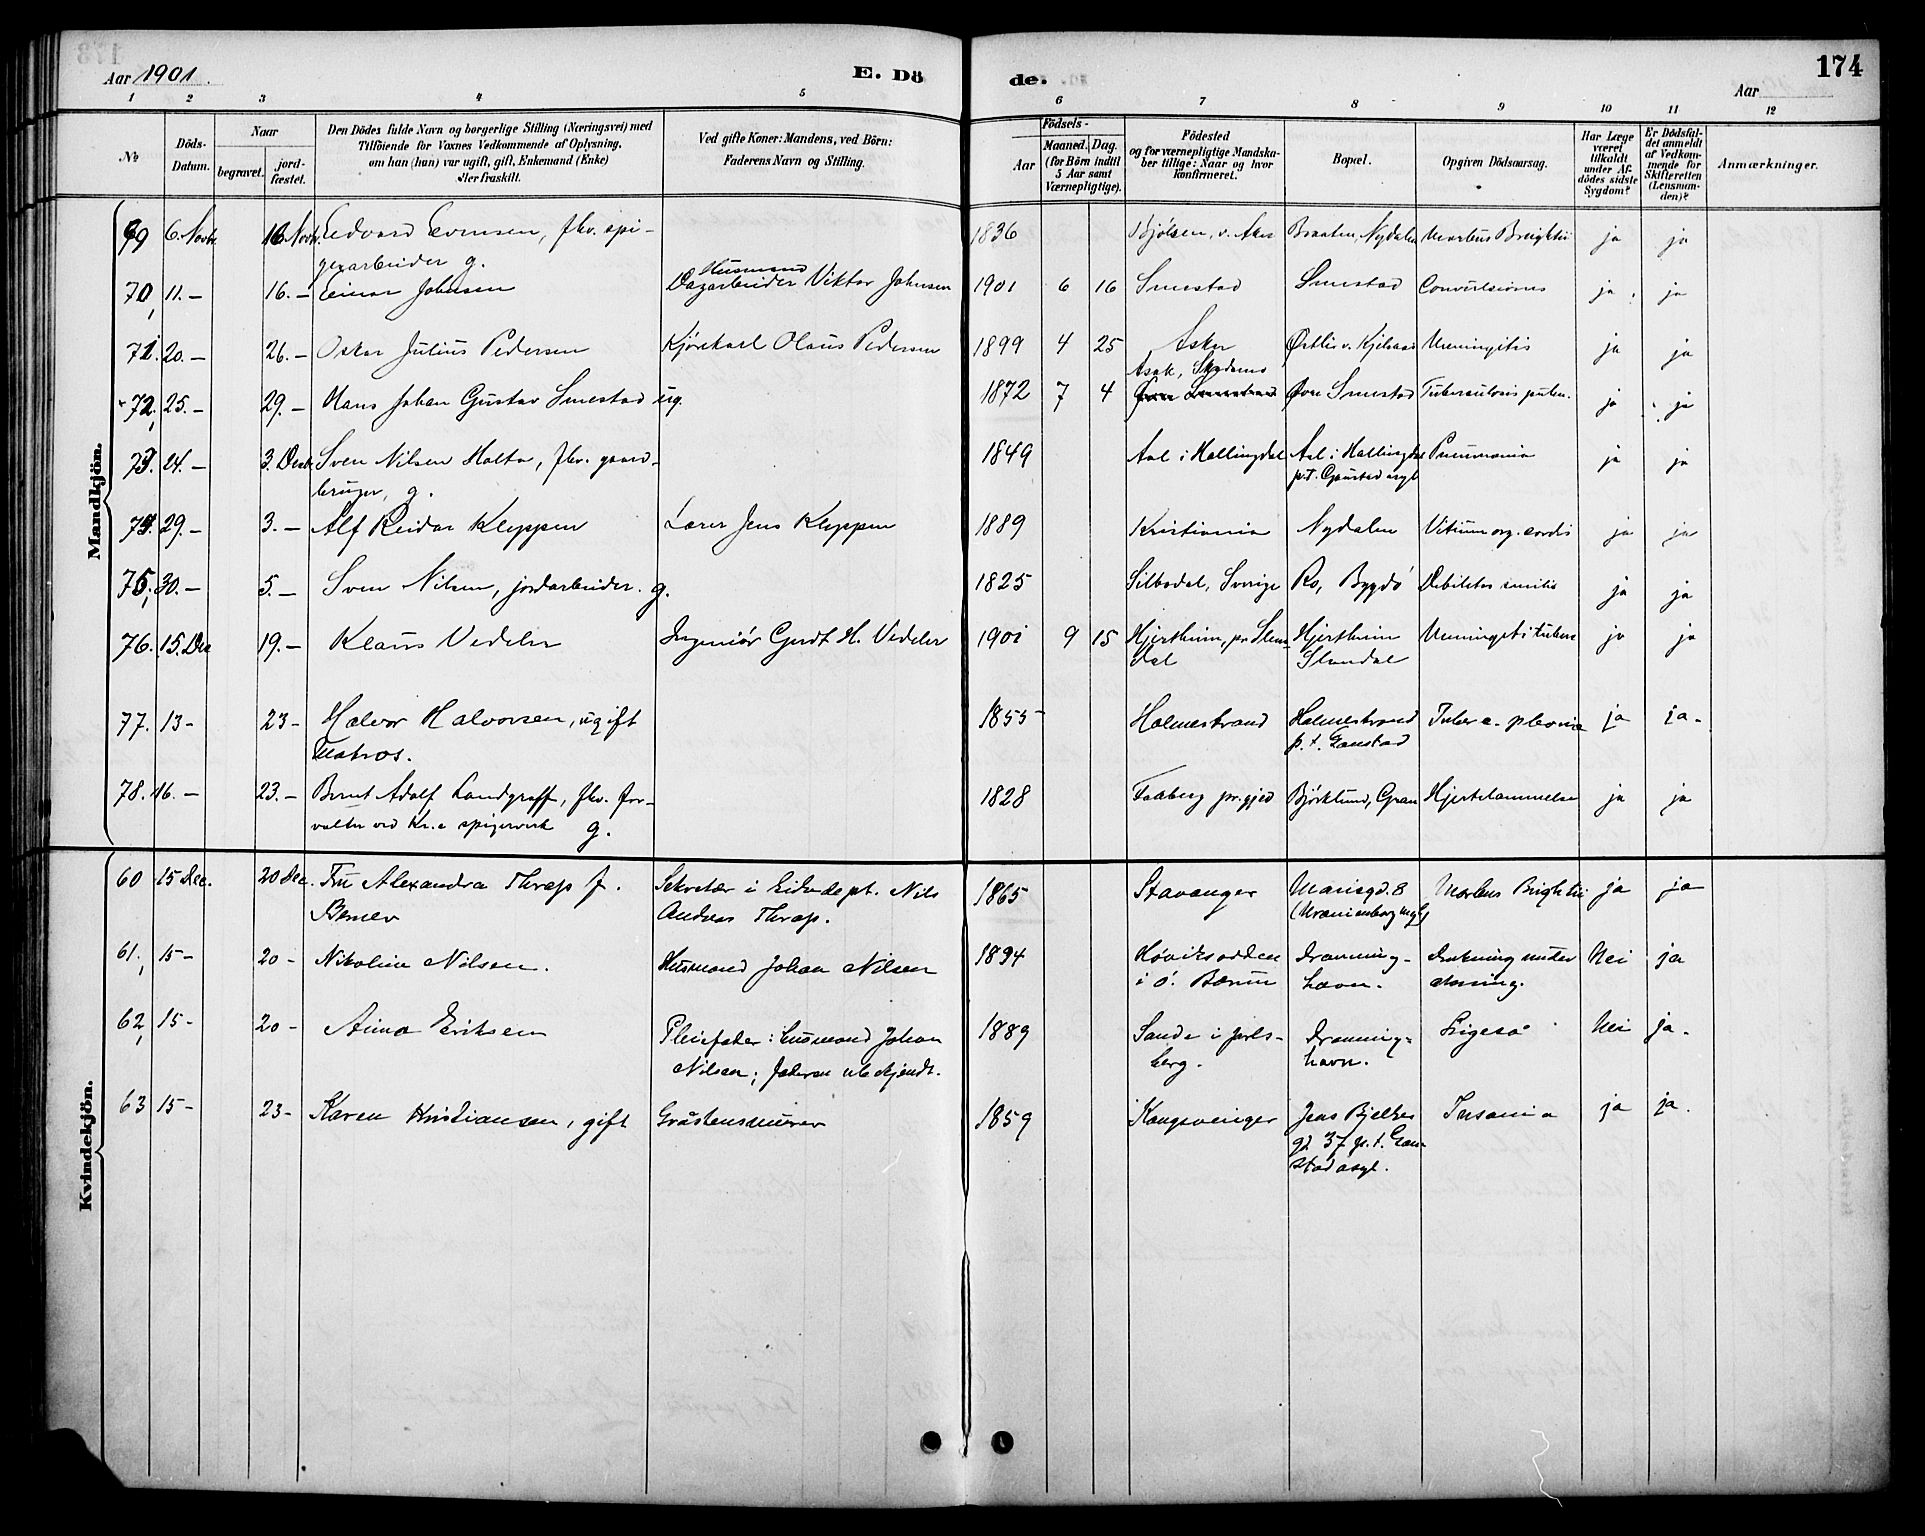 Aar 1901. E. Dö de. Aar 174
1 2 3 4 5 6 7 8 9 10 11 12
No
Döds-Datum.
Naar
begravet.
jord-fæstet.
Den Dödes fulde Navn og borgerlige Stilling (Næringsvei) med
Tilföiende for Voxnes Vedkommende af Oplysning,
om han (hun) var ugift, gift, Enkemand (Enke)
eller fraskilt.
Ved gifte Koner: Mandens, ved Börn:
Faderens Navn og Stilling.
Födsels-
Aar
Maaned. Dag.
(for Börn indtil
5 Aar samt
Værnepligtige).
Födested
og for værnepligtige Mandska-
ber tillige: Naar og hvor
konfirmeret.
Bopæl.
Opgiven Dödsaarsag.
Har Læge
været
tilkaldt
under Af-
dödes sidste
Sygdom?
Er Dödsfal-
det anmeldt
af Vedkom-
mende for
Skifteretten
(Lensman-
den)?
Anmærkninger.
Mandkjön.
69 6. Novb. 16 Novb. Edvard Evensen, fhv. spi- 1836 Bjølsen, v. Aker Braaten, Nydalen Morbus Brightii ja ja
gerarbeider g.
70, 11. – 16. – Einar Johnsen Husmand
Dagarbeider Viktor Johnsen 1901 6 16 Smestad Smestad Convulsiones ja ja
71. 20. – 26. – Oskar Julius Pedersen Kjørekarl Olaus Pedersen 1899 4 25 Asker Østli v. Kjelsaas Meningitis ja ja
Asak, Skedsmo
72, 25. – 29. – Hans Johan Gustav Smestad ug. 1872 7 4 Øvre Smestad Øvre Smestad Tuberculosis pulm. ja ja
73. 24. – 3. Decb. Sven Nilsen Holto, fhv. gaard- 1849 Aal i Hallingdal Aal i Hallingdal Pneumonia ja ja
bruger, g. p.t. Gaustad asyl
74. 29. – 3. – Alf Reidar Kleppen Lærer Jens Kleppen 1889 Kristiania Nydalen Vitium org. cordis ja ja
75, 30. – 5. – Sven Nilsen, jordarbeider. g. 1825 Silbodal, Sverige Ro, Bygdø Debilitas senilis ja ja
76. 15. Dec 19. – Klaus Vedeler Ingeniør Gerdt H. Vedeler 1901 9 15 Hjertheim, pr Slem- Hjertheim Meningitis tuberc ja ja
dal Slemdal
77. 13 – 23 – Halvor Halvorsen, ugift 1855 Holmestrand Holmestrand Tuberc. pleurae ja ja.
Matros. p. t. Gaustad
78. 16. – 23. – Bernt Adolf Landgraff, fhv. for- 1828 Faaberg prgjed Bjørklund, Grav Hjertelammelse ja ja
valter ved Kr.a spigerverk g.
Kvindekjön.
60 15 Dec. 20 Dec. Fru Alexandra Thrap f. Sekretær i Kirkedept. Nils 1865 Stavanger Mariegd. 8 Morbus Brightii ja ja
Berner Andreas Thrap. (Uranienborg mgh)
61, 15 – 20 – Nikoline Nilsen. Husmand Johan Nilsen 1894 Høvikodden Dronning- Drukning under Nei ja
i Ø. Bærum havn.
62, 15 – 20 – Anna Eriksen Pleiefader: husmand Johan 1889 Sande i Jarls- Dronning- Ligeså Nei ja.
Nilsen; faderen ubekjendt. berg. havn.
63 15 – 23 – Karen Kristiansen, gift Gråstensmurer 1859 Kongsvinger Jens Bjelkes Insania ja ja.
gd. 37 p. t. Gau-
stad asyl.